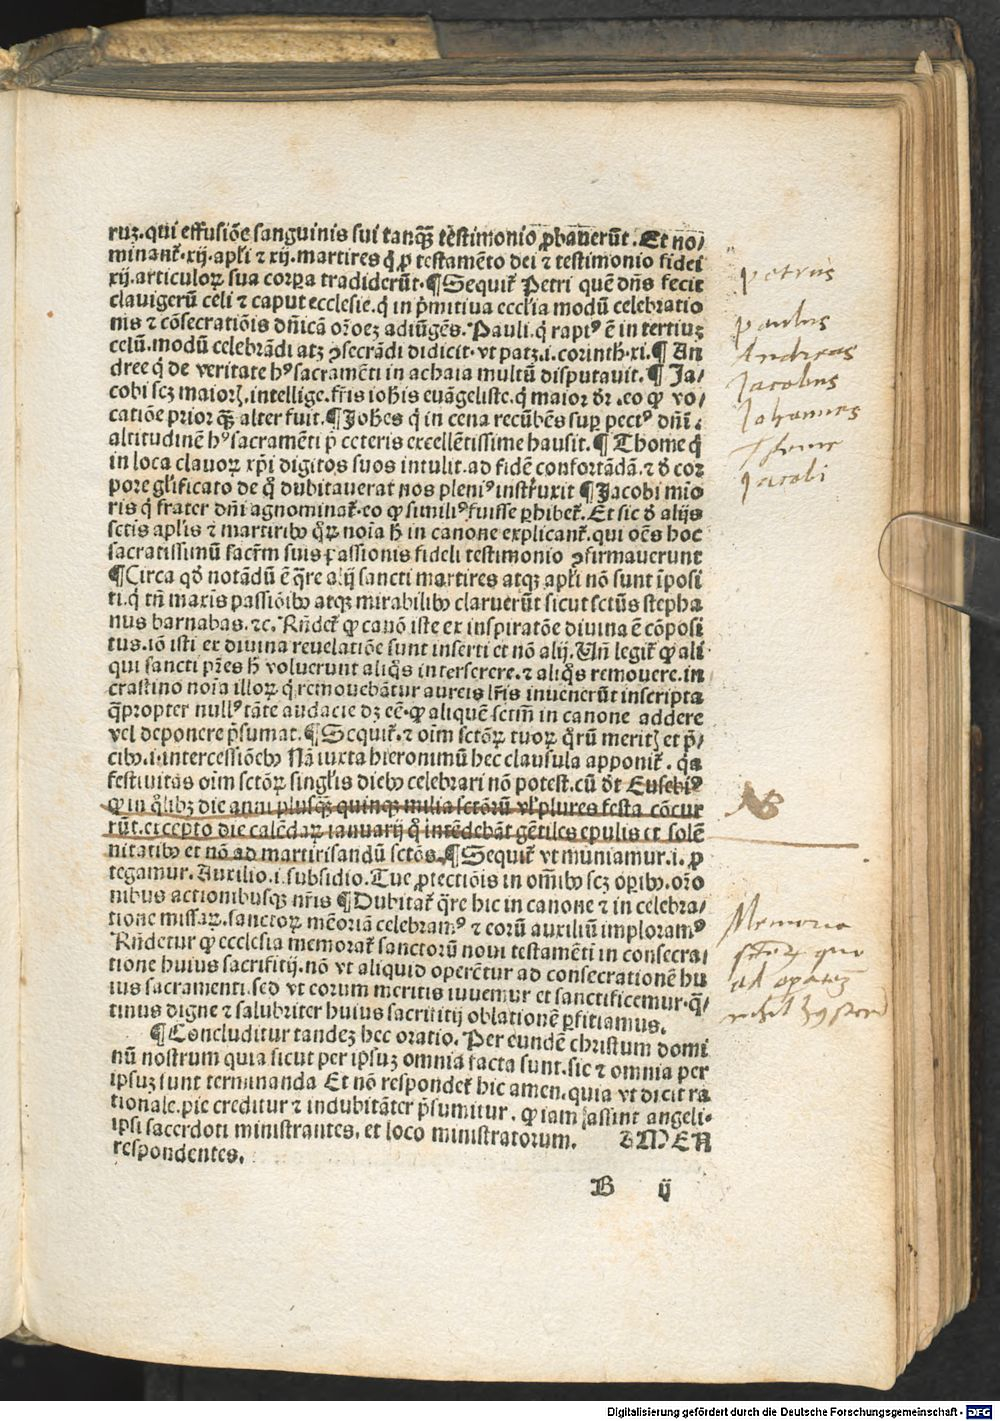 ruꝫ.qui effusiōe sanguinis sui tanqꝫ̄ testimonio ꝓbauerūt. Et no⸗
minant᷑.xij.apl̓i ⁊ xij.martires q̓ ꝓ testamēto dei ⁊ testimonio fidei
xij.articuloꝝ sua corꝑa tradiderūt.¶Sequit᷑ Petri quē dn̄s fecit
clauigerū celi ⁊ caput ecclesie.q̓ in p̓mitiua eccl̓ia modū celebratio
nis ⁊ cōsecratiōis dn̄icā or̄oeꝫ adiūgēs. Pauli.q̓ rapt⁹ ē in tertiuꝫ
celū.modū celebrādi atꝫ ꝯsecrādi didicit.vt patꝫ.i.corinth.xi.¶ An
dree q̓ de veritate h⁹ sacramēti in achaia multū disputauit.¶ Ja⸗
cobi scꝫ maior̄.intellige.fr̄is ioh̄is euāgeliste.q̓ maior d̓r.eo ꝙ vo⸗
catiōe prior qꝫ̄ alter fuit.¶Joh̄es q̓ in cena recūbēs suꝑ pect⁹ dn̄i.
altitudinē h⁹ sacramēti p̄ ceteris excellētissime hausit.¶Thome q̓
in loca clauoꝝ xp̄i digitos suos intulit.ad fidē confortādā.⁊ d̓ cor
pore gl̓ificato de q̊ dubitauerat nos pleni⁹ instruxit ¶Jacobi mīo
ris q̓ frater dn̄i agnominat᷑.eo ꝙ simili⁹ fuisse ꝑhibet᷑. Et sic d̓ alijs
sctis apl̓is ⁊ martiribꝰ q̊ꝝ noīa h̄ in canone explicant᷑.qui oēs hoc
sacratissimū sacr̄m suis passionis fideli testimonio ꝯfirmauerunt
¶Circa qd̓ notādū ē q̄re alij sancti martires atqꝫ apl̓i nō sunt īposi
ti.q̓ tn̄ maxīs passiōibꝰ atqꝫ mirabilibꝰ claruerūt sicut sctūs stepha
nus barnabas.⁊c. Rn̄det᷑ ꝙ canō iste ex inspiratōe diuina ē cōposi
tus.iō isti ex diuina reuelatiōe sunt inserti et nō alij.Vn̄ legit᷑ ꝙ ali
qui sancti pr̄es h̄ voluerunt aliq̊s interserere.⁊ aliq̊s remouere.in
crastino noīa illoꝝ q̓ remouebātur aureis lr̄is inuenerūt inscripta
q̄propter null⁹ tāte audacie dꝫ eē.ꝙ aliquē sctm̄ in canone addere
vel deponere p̄sumat.¶Sequit᷑.⁊ oīm sctōꝝ tuoꝝ q̊rū merit̄ et p̄⸗
cibꝰ.i.intercessiōebꝰ Nā iuxta hieronimū hec clausula apponit᷑.qꝛ
festiuitas oīm sctōꝝ singl̓is diebꝰ celebrari nō potest.cū d̓t Eusebi⁹
ꝙ in q̊libꝫ die anni plusqꝫ̄ quinqꝫ milia sctōrū vl̓ plures festa cōcur
rūt.excepto die calēdaꝝ ianuarij q̊ intēdebāt gētiles epulis et solē
nitatibꝰ et nō ad martirisandū sctōs.¶Sequit᷑ vt muniamur.i.ꝓ
tegamur. Auxilio.i.subsidio.Tue ꝓtectiōis in om̄ibꝰ scꝫ oꝑibꝰ.or̄o
nibus actionibusqꝫ nr̄is ¶Dubitat᷑ q̄re hic in canone ⁊ in celebra⸗
tione missaꝝ.sanctoꝝ memoriā celebram⁹ ⁊ eorū auxiliū imploram⁹
Rn̄detur ꝙ ecclesia memorat᷑ sanctorū noui testamēti in consecra⸗
tione huius sacrifitij.nō vt aliquid operētur ad consecrationē hu
ius sacramenti.sed vt eorum meritis iuuemur et sanctificemur.q̄⸗
tinus digne ⁊ salubriter huius sacrifitij oblationē ꝑfitiamus.
¶Concluditur tandeꝫ hec oratio. Per eundē christum domi
nū nostrum quia sicut per ipsuꝫ omnia facta sunt.sic ⁊ omnia per
ipsuꝫ sunt terminanda Et nō respondet᷑ hic amen.quia vt dicit ra
tionale.pie creditur ⁊ indubitāter p̄sumitur.ꝙ iam assint angeli
ipsi sacerdoti ministrantes.et loco ministratorum. AMEN
respondentes.
B ij
petrus
paulus
Andreas
Jacobus
Johannes
Thome
Jacobi
NB
Memoria
Digitalisierung gefördert durch die Deutsche Forschungsgemeinschaft - DFG